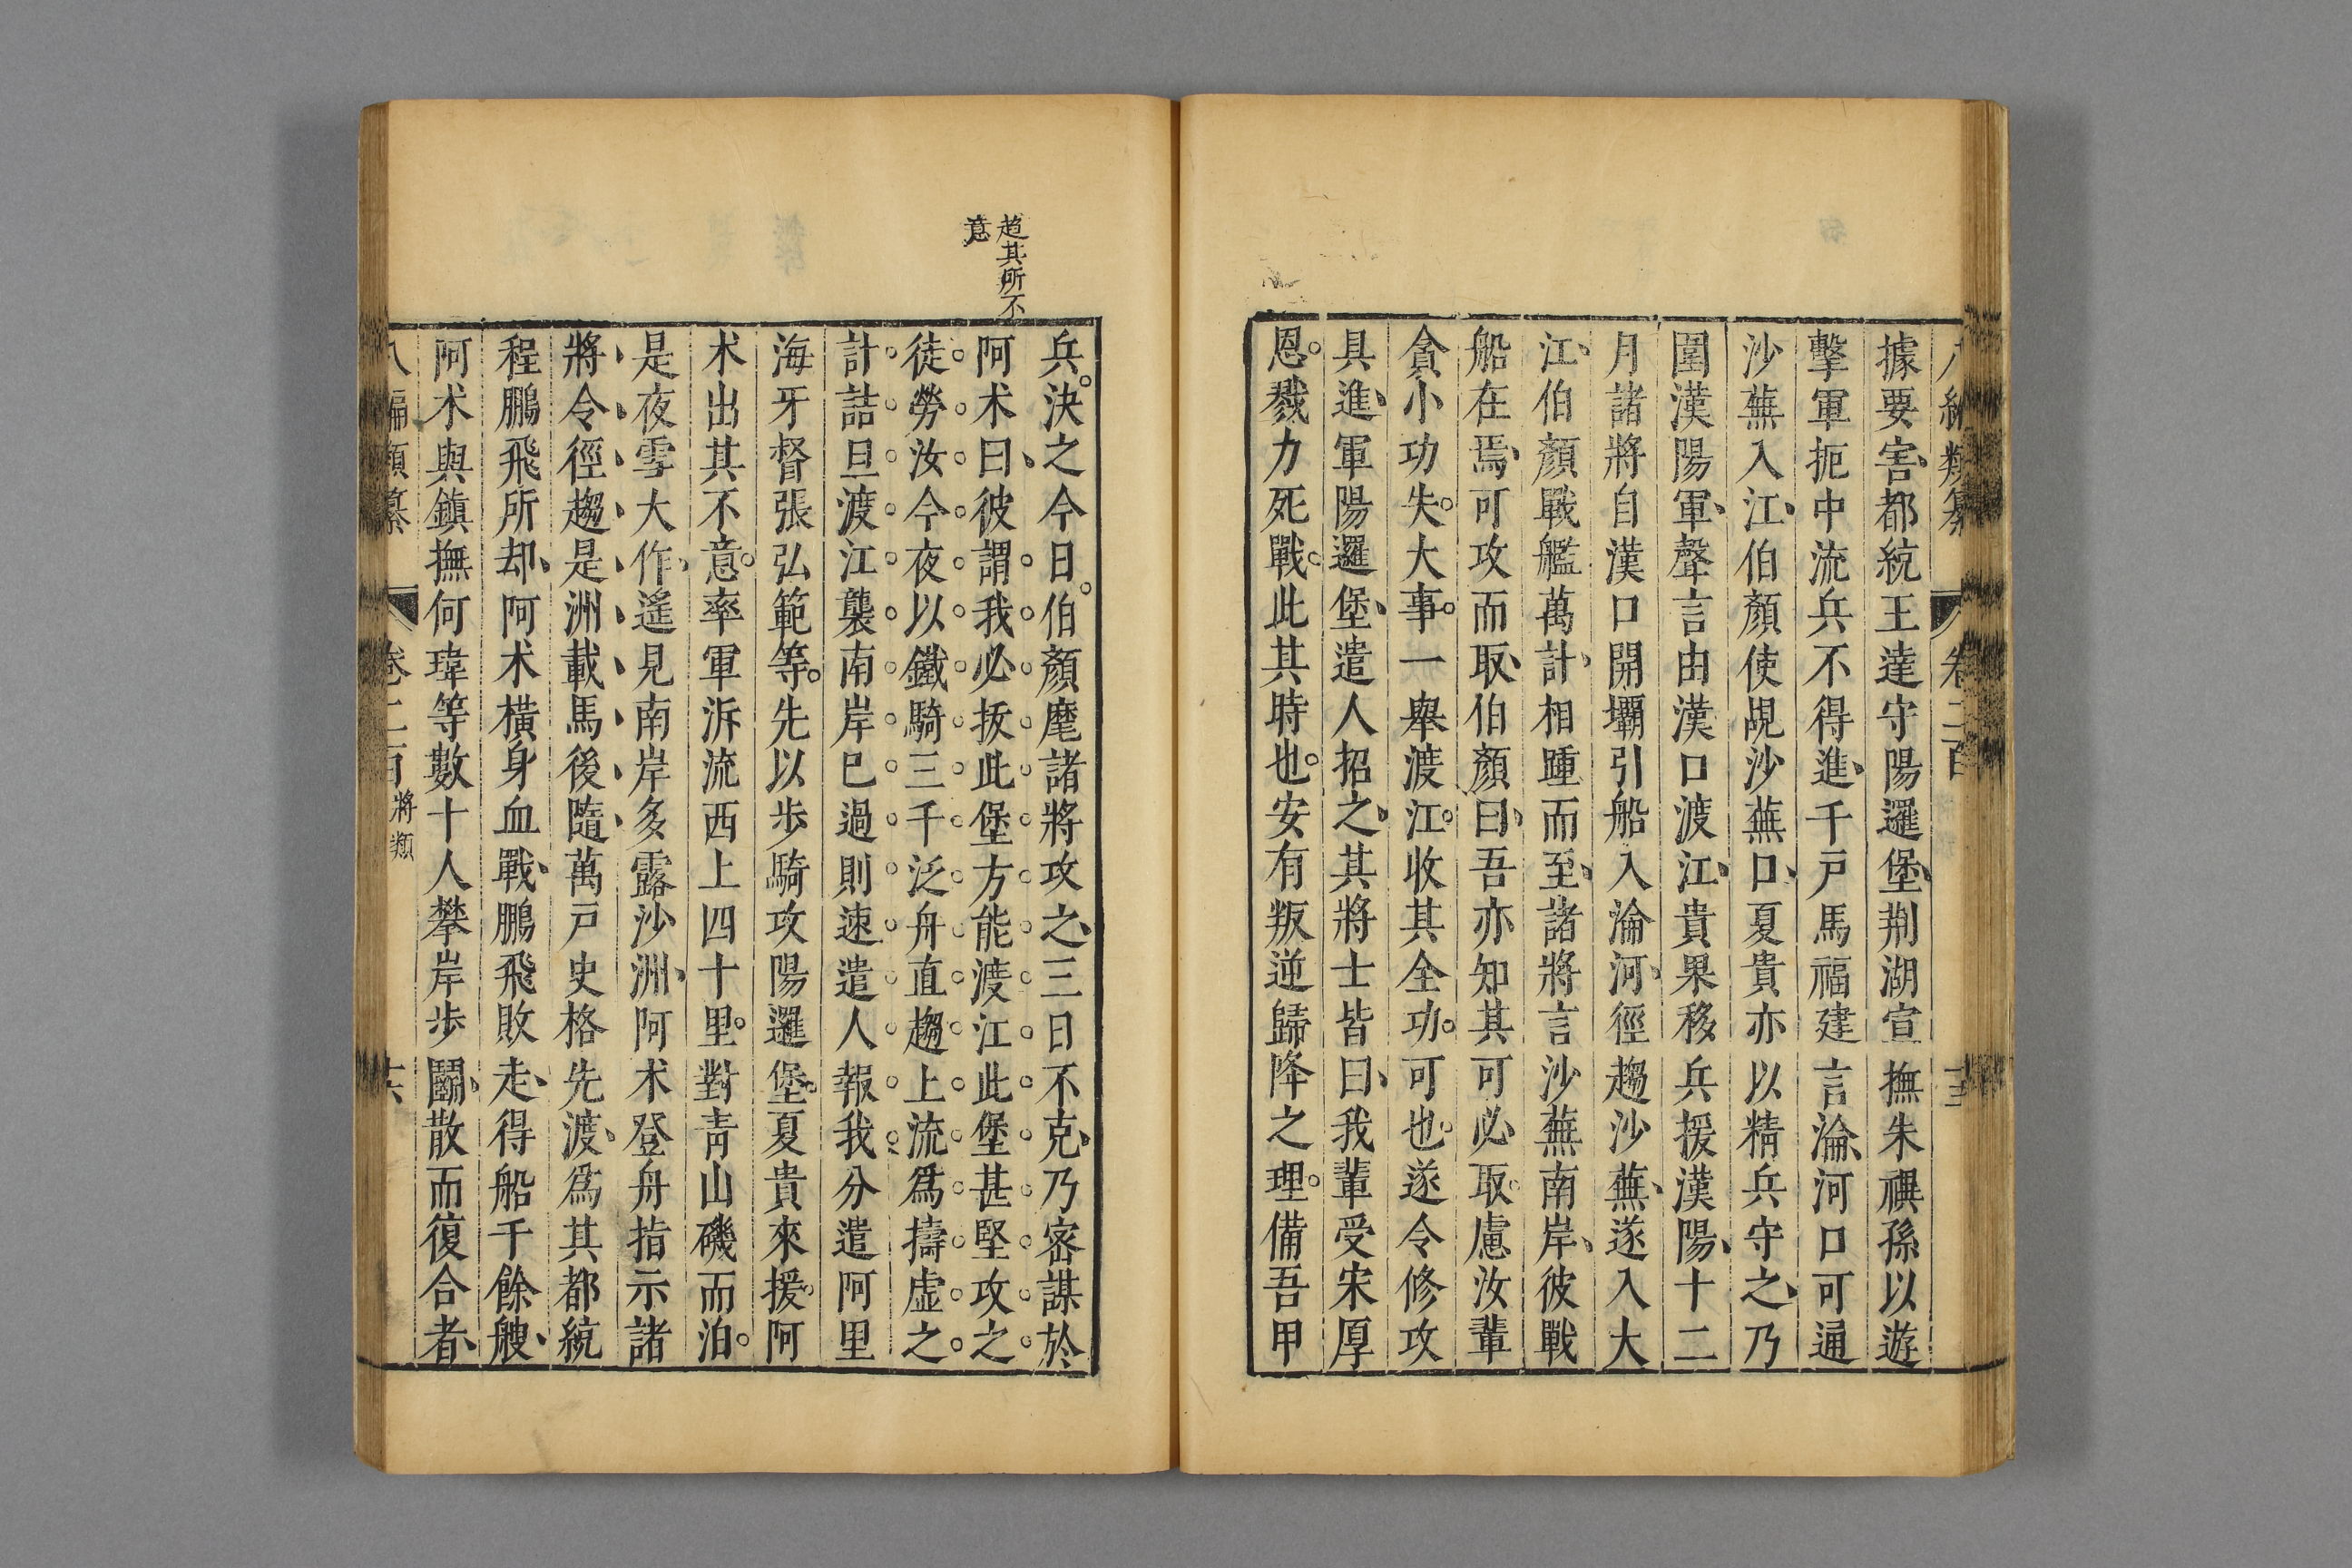 據要害都統王達守陽邏堡荆湖宣撫朱禩孫以遊
擊軍扼中流兵不得進千戸馬福建言淪河口可通
沙蕪入江伯顏使覘沙蕪口夏貴亦以精兵守之乃
圍漢陽軍聲言由漢口渡江貴果移兵援漢陽十二
月諸將自漢口開壩引船入淪河徑趨沙蕪遂入大
江伯顏戰艦萬計相踵而至諸將言沙蕪南岸彼戰
船在焉可攻而取伯顏曰吾亦知其可必取慮汝輩
貪小功失大事一舉渡江收其全功可也遂令修攻
具進軍陽邏堡遣人招之其將士皆曰我輩受宋厚
恩戮力死戰此其時也安有叛逆歸降之理備吾甲
趋其所不
意
兵決之今日伯顏麾諸將攻之三日不克乃密謀於
阿术曰彼謂我必扳此堡方能渡江此堡甚堅攻之
徒勞汝今夜以鐵騎三千泛舟直趨上流爲擣虛之
計詰旦渡江襲南岸已過則速遣人報我分遣阿里
海牙督張弘範等先以步騎攻陽邏堡夏貴來援阿
术出其不意率軍泝流西上四十里對青山磯而泊
是夜雪大作遙見南岸多露沙洲阿术登舟指示諸
將令徑趨是洲載馬後隨萬戸史格先渡爲其都統
程鵬飛所却阿术橫身血戰鵬飛敗走得船千餘艘
阿术與鎮撫何瑋等數十人攀岸步鬭散而復合者
八編類纂 卷二百 將類 十六